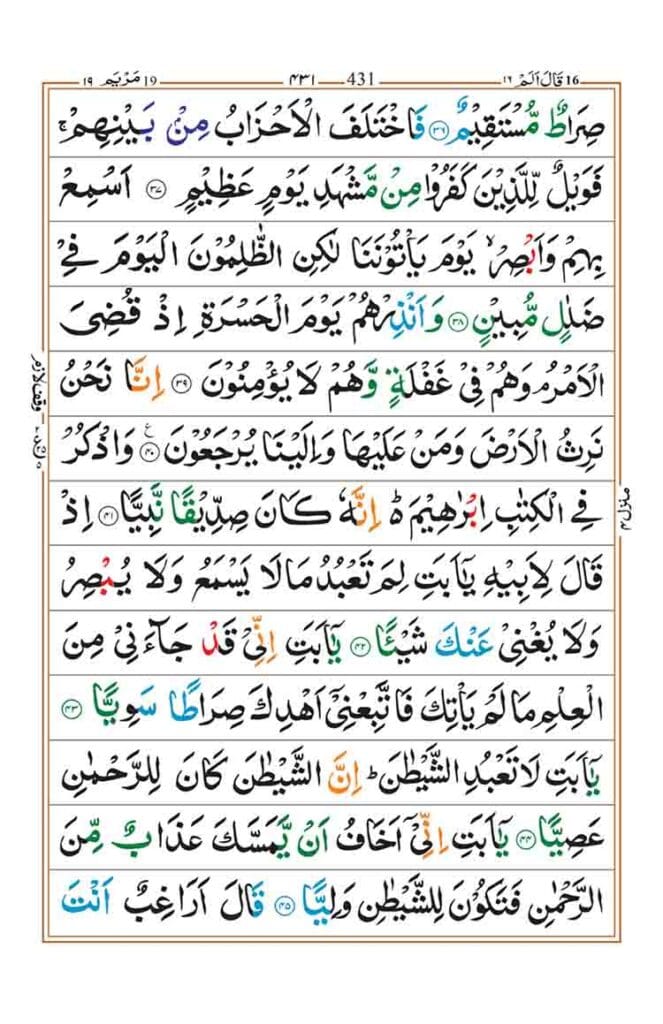 19 مَرْيَم ١٩ ٤٣١ 431 16 قَالَ اَلَمْ ١٦
صِرَاطٌ مُّسْتَقِيْمٌ ﴿٣٦﴾ فَاخْتَلَفَ الْاَحْزَابُ مِنْۢ بَيْنِهِمْ ۚ
فَوَيْلٌ لِّلَّذِيْنَ كَفَرُوْا مِنْ مَّشْهَدِ يَوْمٍ عَظِيْمٍ ﴿٣٧﴾ اَسْمِعْ
بِهِمْ وَاَبْصِرْ ۙ يَوْمَ يَاْتُوْنَنَا لٰكِنِ الظّٰلِمُوْنَ الْيَوْمَ فِيْ
ضَلٰلٍ مُّبِيْنٍ ﴿٣٨﴾ وَاَنْذِرْهُمْ يَوْمَ الْحَسْرَةِ اِذْ قُضِيَ
الْاَمْرُ ۘ وَهُمْ فِيْ غَفْلَةٍ وَّهُمْ لَا يُؤْمِنُوْنَ ﴿٣٩﴾ اِنَّا نَحْنُ
نَرِثُ الْاَرْضَ وَمَنْ عَلَيْهَا وَاِلَيْنَا يُرْجَعُوْنَ ﴿٤٠﴾ ع وَاذْكُرْ
فِي الْكِتٰبِ اِبْرٰهِيْمَ ۬ؕ اِنَّهٗ كَانَ صِدِّيْقًا نَّبِيًّا ﴿٤١﴾ اِذْ
قَالَ لِاَبِيْهِ يٰۤاَبَتِ لِمَ تَعْبُدُ مَا لَا يَسْمَعُ وَلَا يُبْصِرُ
وَلَا يُغْنِيْ عَنْكَ شَيْـًٔا ﴿٤٢﴾ يٰۤاَبَتِ اِنِّيْ قَدْ جَآءَنِيْ مِنَ
الْعِلْمِ مَا لَمْ يَاْتِكَ فَاتَّبِعْنِيْۤ اَهْدِكَ صِرَاطًا سَوِيًّا ﴿٤٣﴾
يٰۤاَبَتِ لَا تَعْبُدِ الشَّيْطٰنَ ؕ اِنَّ الشَّيْطٰنَ كَانَ لِلرَّحْمٰنِ
عَصِيًّا ﴿٤٤﴾ يٰۤاَبَتِ اِنِّيْۤ اَخَافُ اَنْ يَّمَسَّكَ عَذَابٌ مِّنَ
الرَّحْمٰنِ فَتَكُوْنَ لِلشَّيْطٰنِ وَلِيًّا ﴿٤٥﴾ قَالَ اَرَاغِبٌ اَنْتَ
وقف لازم
منزل ٤